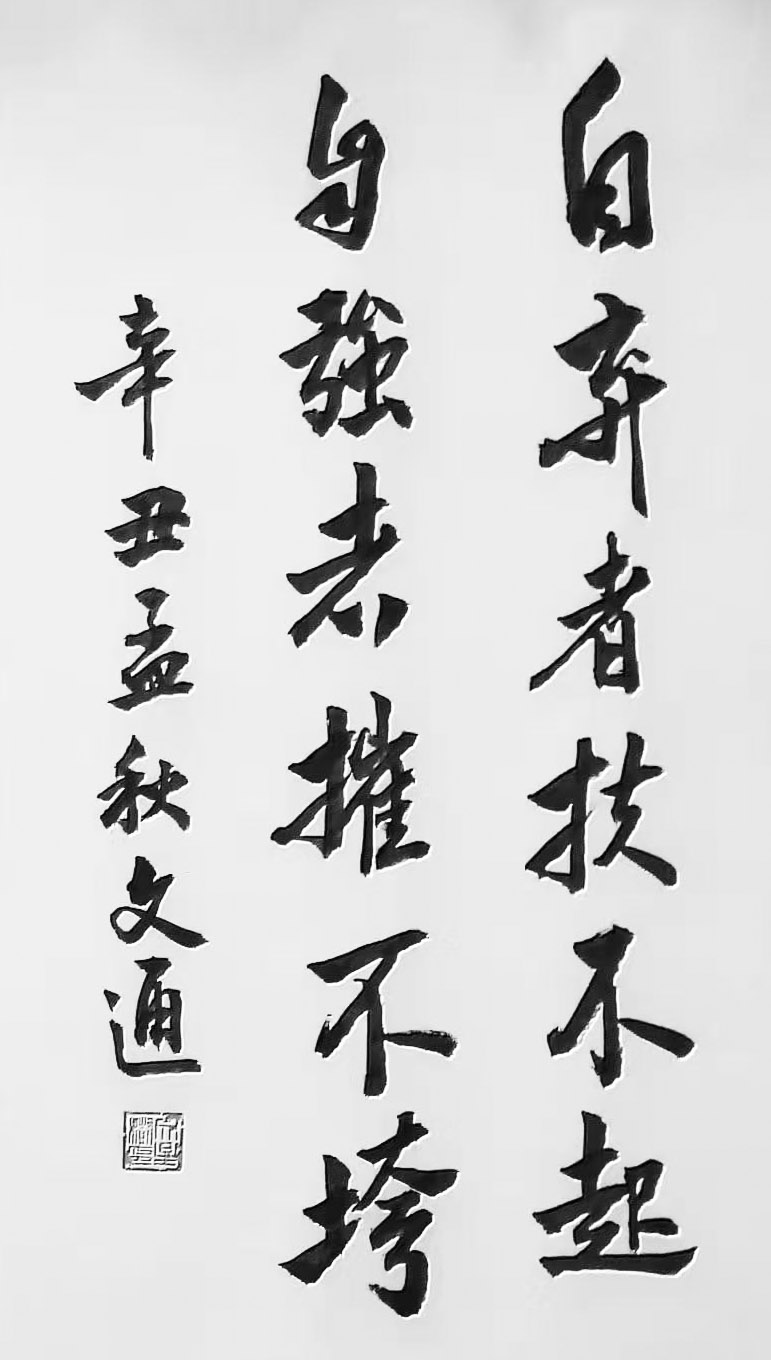 自弃者扶不起
自強者摧不垮
辛丑孟秋文通